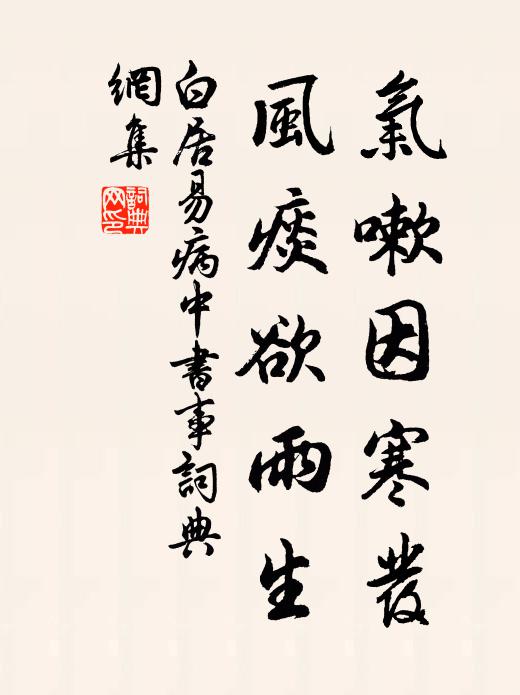 氣嗽因寒發
風痰欲雨生
白居易病中書事詞典
網集
詞典
网印